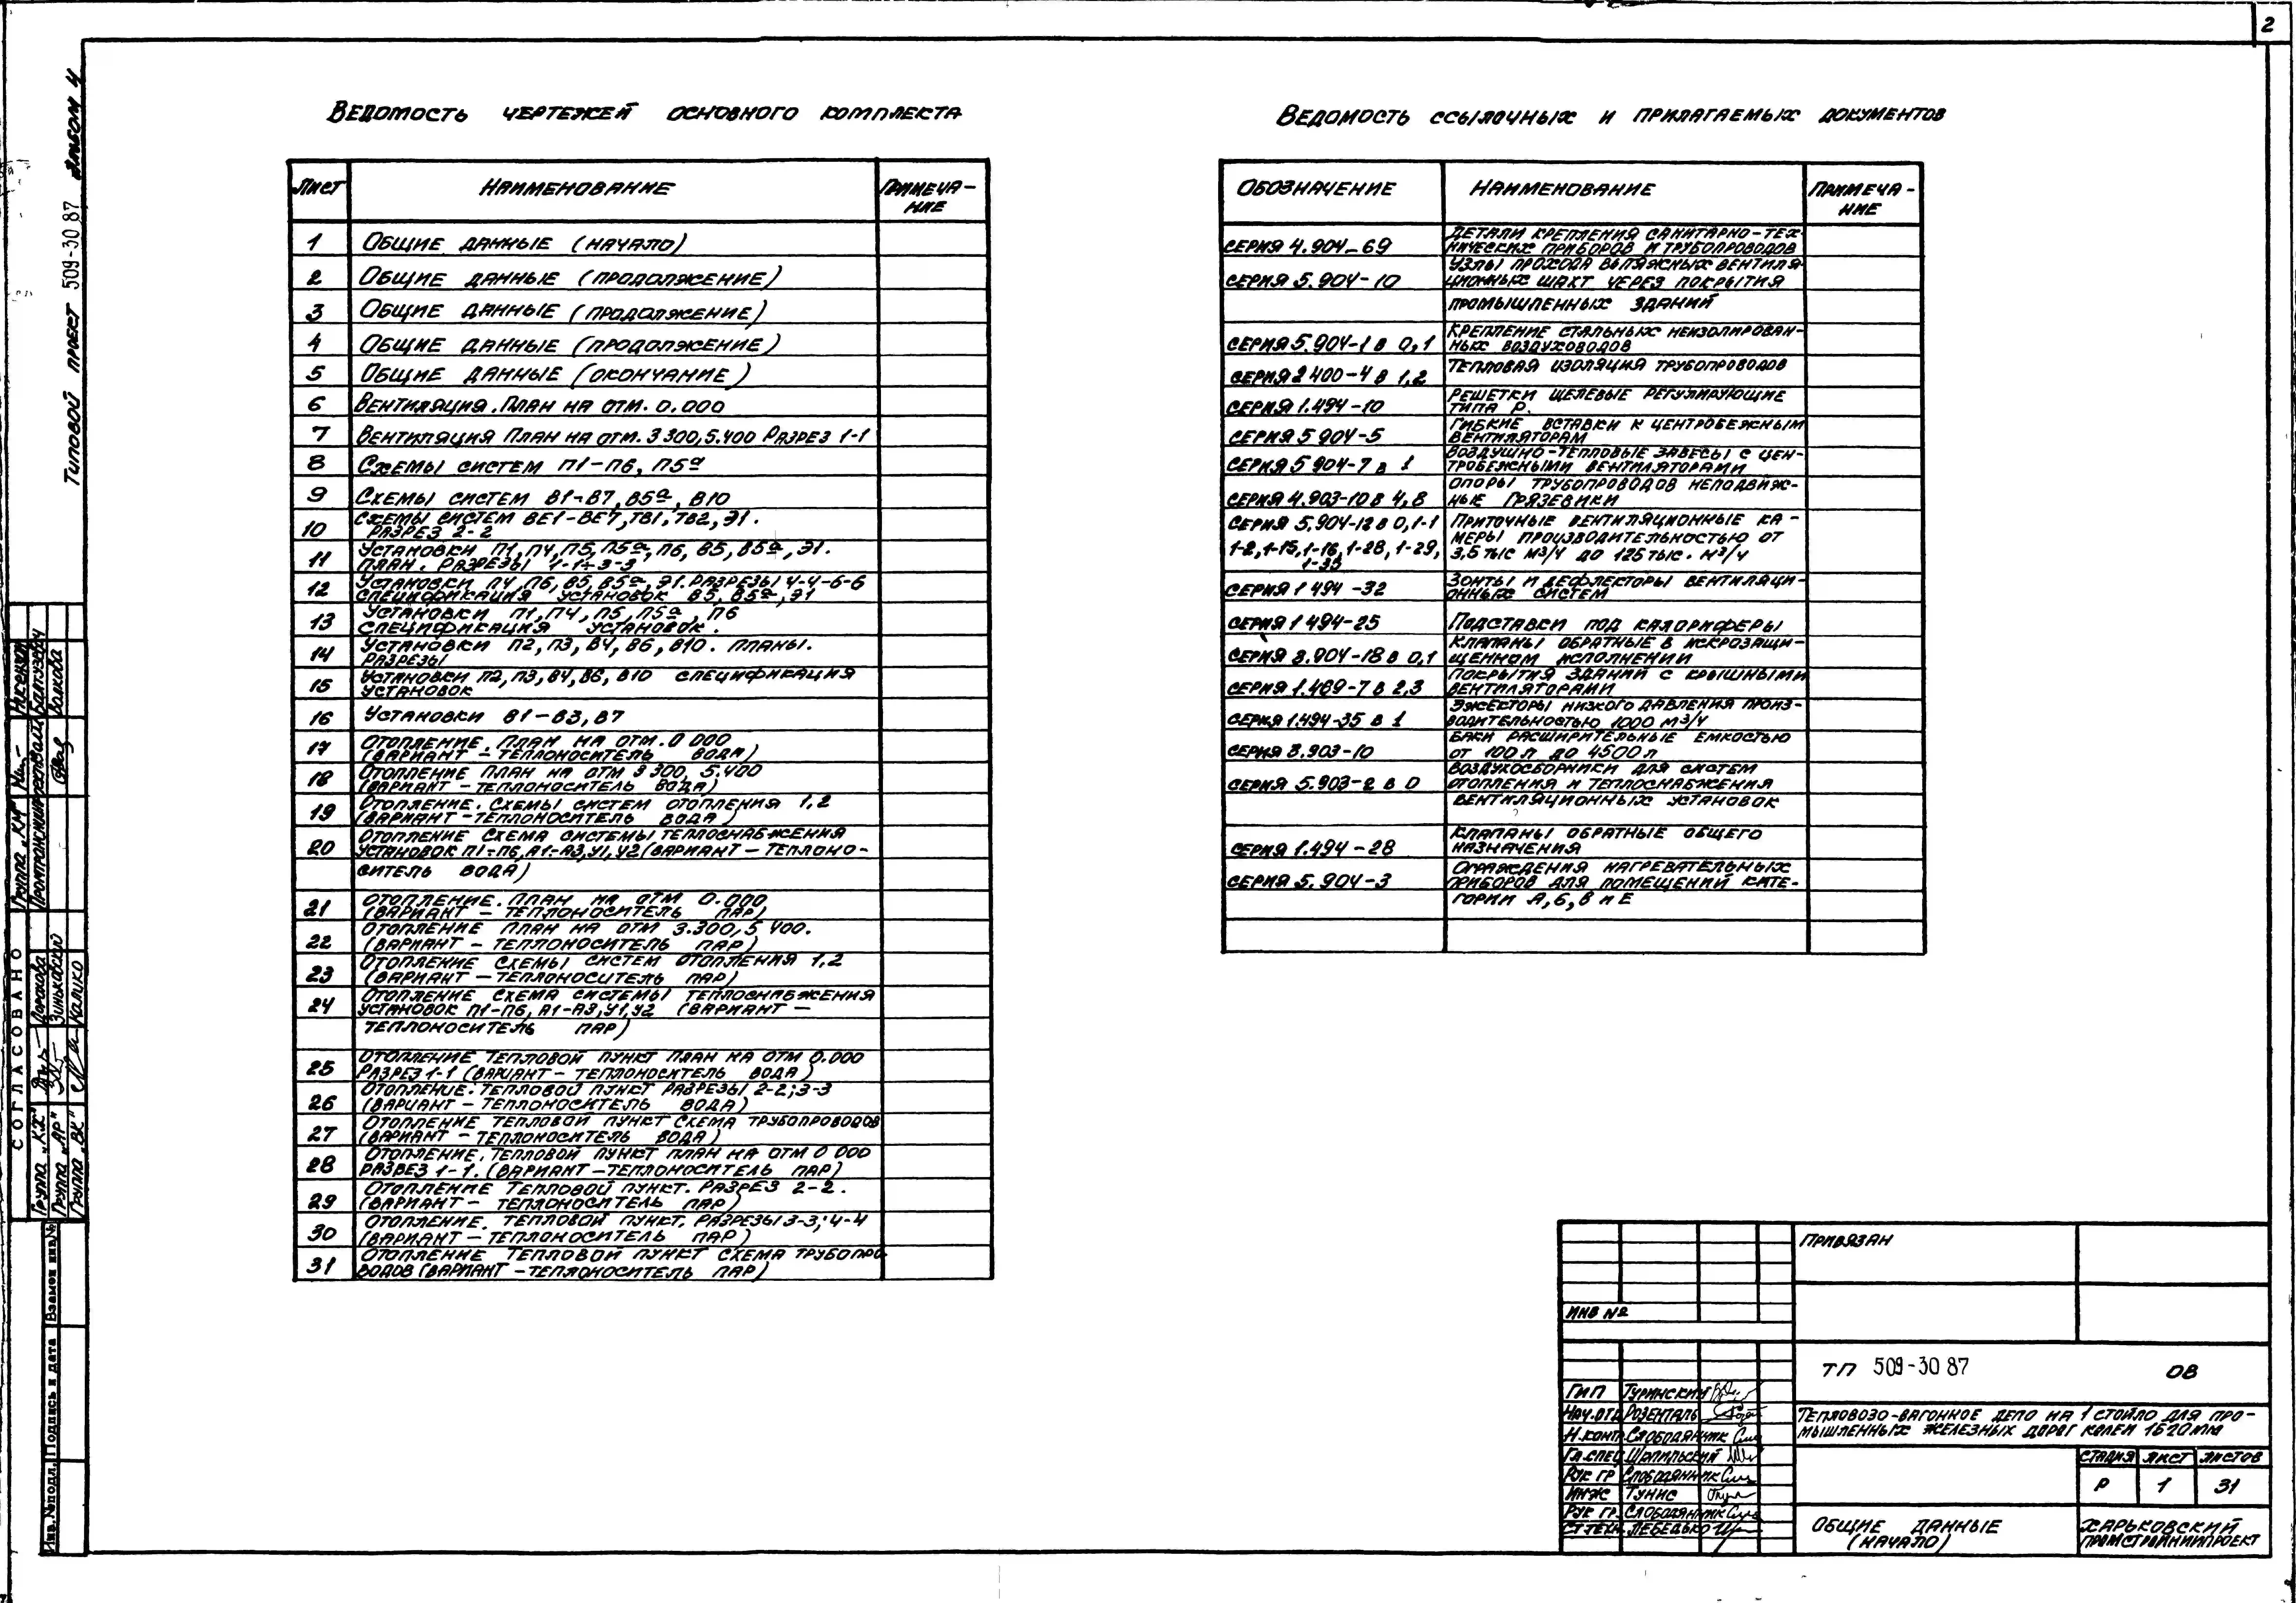 2
Типовой проект 509-30 87 Альбом 4
Ведомость чертежей основного комплекта
Лист Наименование Примеча-
ние
1 Общие данные (начало)
2 Общие данные (продолжение)
3 Общие данные (продолжение)
4 Общие данные (продолжение)
5 Общие данные (окончание)
6 Вентиляция. План на отм. 0.000
7 Вентиляция План на отм. 3 300, 5.400 Разрез 1-1
8 Схемы систем П1-П6, П5а
9 Схемы систем В1-В7, В5а, В10
Схемы систем ВЕ1-ВЕ7, ТВ1, ТВ2, Э1.
10 Разрез 2-2
Установки П1, П4, П5, П5а, П6, В5, В5а, Э1.
11 План. Разрезы 1-1÷3-3
Установки П4, П6, В5, В5а, Э1. Разрезы 4-4-6-6
12 Спецификация установок В5, В5а, Э1
Установки П1, П4, П5, П5а, П6
13 Спецификация установок.
Установки П2, П3, В4, В6, В10. Планы.
14 Разрезы
Установки П2, П3, В4, В6, В10 спецификация
15 установок
16 Установки В1-В3, В7
Отопление. План на отм. 0 000
17 (вариант - теплоноситель вода)
Отопление план на отм 3 300, 5.400
18 (вариант - теплоноситель вода)
Отопление. Схемы систем отопления 1,2
19 (вариант - теплоноситель вода)
Отопление Схема системы теплоснабжения
20 установок П1÷П6, А1÷А3, У1, У2 (вариант - теплоно-
ситель вода)
Отопление. План на отм 0.000
21 (вариант - теплоноситель пар)
Отопление План на отм 3.300, 5 400.
22 (вариант - теплоноситель пар)
Отопление Схемы систем отопления 1,2
23 (вариант - теплоноситель пар)
Отопление Схема системы теплоснабжения
24 установок П1-П6, А1-А3, У1, У2 (вариант -
теплоноситель пар)
Отопление Тепловой пункт план на отм 0.000
25 Разрез 1-1 (вариант - теплоноситель вода)
Отопление. Тепловой пункт Разрезы 2-2; 3-3
26 (вариант - теплоноситель вода)
Отопление тепловой пункт Схема трубопроводов
27 (вариант - теплоноситель вода)
Отопление. Тепловой пункт план на отм 0 000
28 разрез 1-1. (вариант - теплоноситель пар)
Отопление Тепловой пункт. Разрез 2-2.
29 (вариант - теплоноситель пар)
Отопление. тепловой пункт. Разрезы 3-3; 4-4
30 (вариант - теплоноситель пар)
Отопление тепловой пункт схема трубопро-
31 водов (вариант - теплоноситель пар)
Ведомость ссылочных и прилагаемых документов
Обозначение Наименование Примеча-
ние
Детали крепления санитарно-тех
серия 4.904-69 нических приборов и трубопроводов
Узлы прохода вытяжных вентиля
серия 5.904-10 ционных шахт через покрытия
промышленных зданий
Крепление стальных неизолирован-
серия 5.904-1 в 0,1 ных воздуховодов
серия 2 400-4 в 1,2 Тепловая изоляция трубопроводов
Решетки щелевые регулирующие
серия 1.494-10 типа Р.
Гибкие вставки к центробежным
серия 5 904-5 вентиляторам
Воздушно-тепловые завесы с цен-
серия 5 904-7 в 1 тробежными вентиляторами
Опоры трубопроводов неподвиж-
серия 4.903-10 в 4,8 ные Грязевики
серия 5.904-12 в 0,1-1 Приточные вентиляционные ка-
1-2, 1-15, 1-16, 1-28, 1-29, меры производительностью от
1-35 3,5 тыс м3/ч до 125 тыс. м3/ч
Зонты и дефлекторы вентиляци-
серия 1 494-32 онных систем
серия 1 494-25 Подставки под калориферы
Клапаны обратные в искрозащи-
серия 3.904-18 в 0,1 щенном исполнении
Покрытия зданий с крышными
серия 1.469-7 в 2,3 вентиляторами
Эжекторы низкого давления произ-
серия 1.494-35 в 1 водительностью 1000 м3/ч
Баки расширительные емкостью
серия 3.903-10 от 100 л до 4500 л
Воздухосборники для систем
серия 5.903-2 в 0 отопления и теплоснабжения
вентиляционных установок
Клапаны обратные общего
серия 1.494-28 назначения
Ограждения нагревательных
серия 5.904-3 приборов для помещений кате-
гории А, Б, В и Е
СОГЛАСОВАНО
Группа "КМ"
Промтрансниипроект
Волкова
Группа "КЖ"
Группа "АР" Зиньковский
Группа "ВК" Калико
Инв.№подл. Подпись и дата Взамен инв№
Привязан
Инв №
ТП 509-30 87 ОВ
ГИП Туринский
Нач.отд Розенталь
Н.конт Слободянник
Гл.спец Шпильский
Рук гр Слободянник
Инж Тунис
Рук гр. Слободянник
Ст техн Лебедько
Тепловозо-вагонное депо на 1 стойло для про-
мышленных железных дорог колеи 1520мм
Стадия Лист Листов
Р 1 31
Общие данные
(начало)
Харьковский
Промстройниипроект